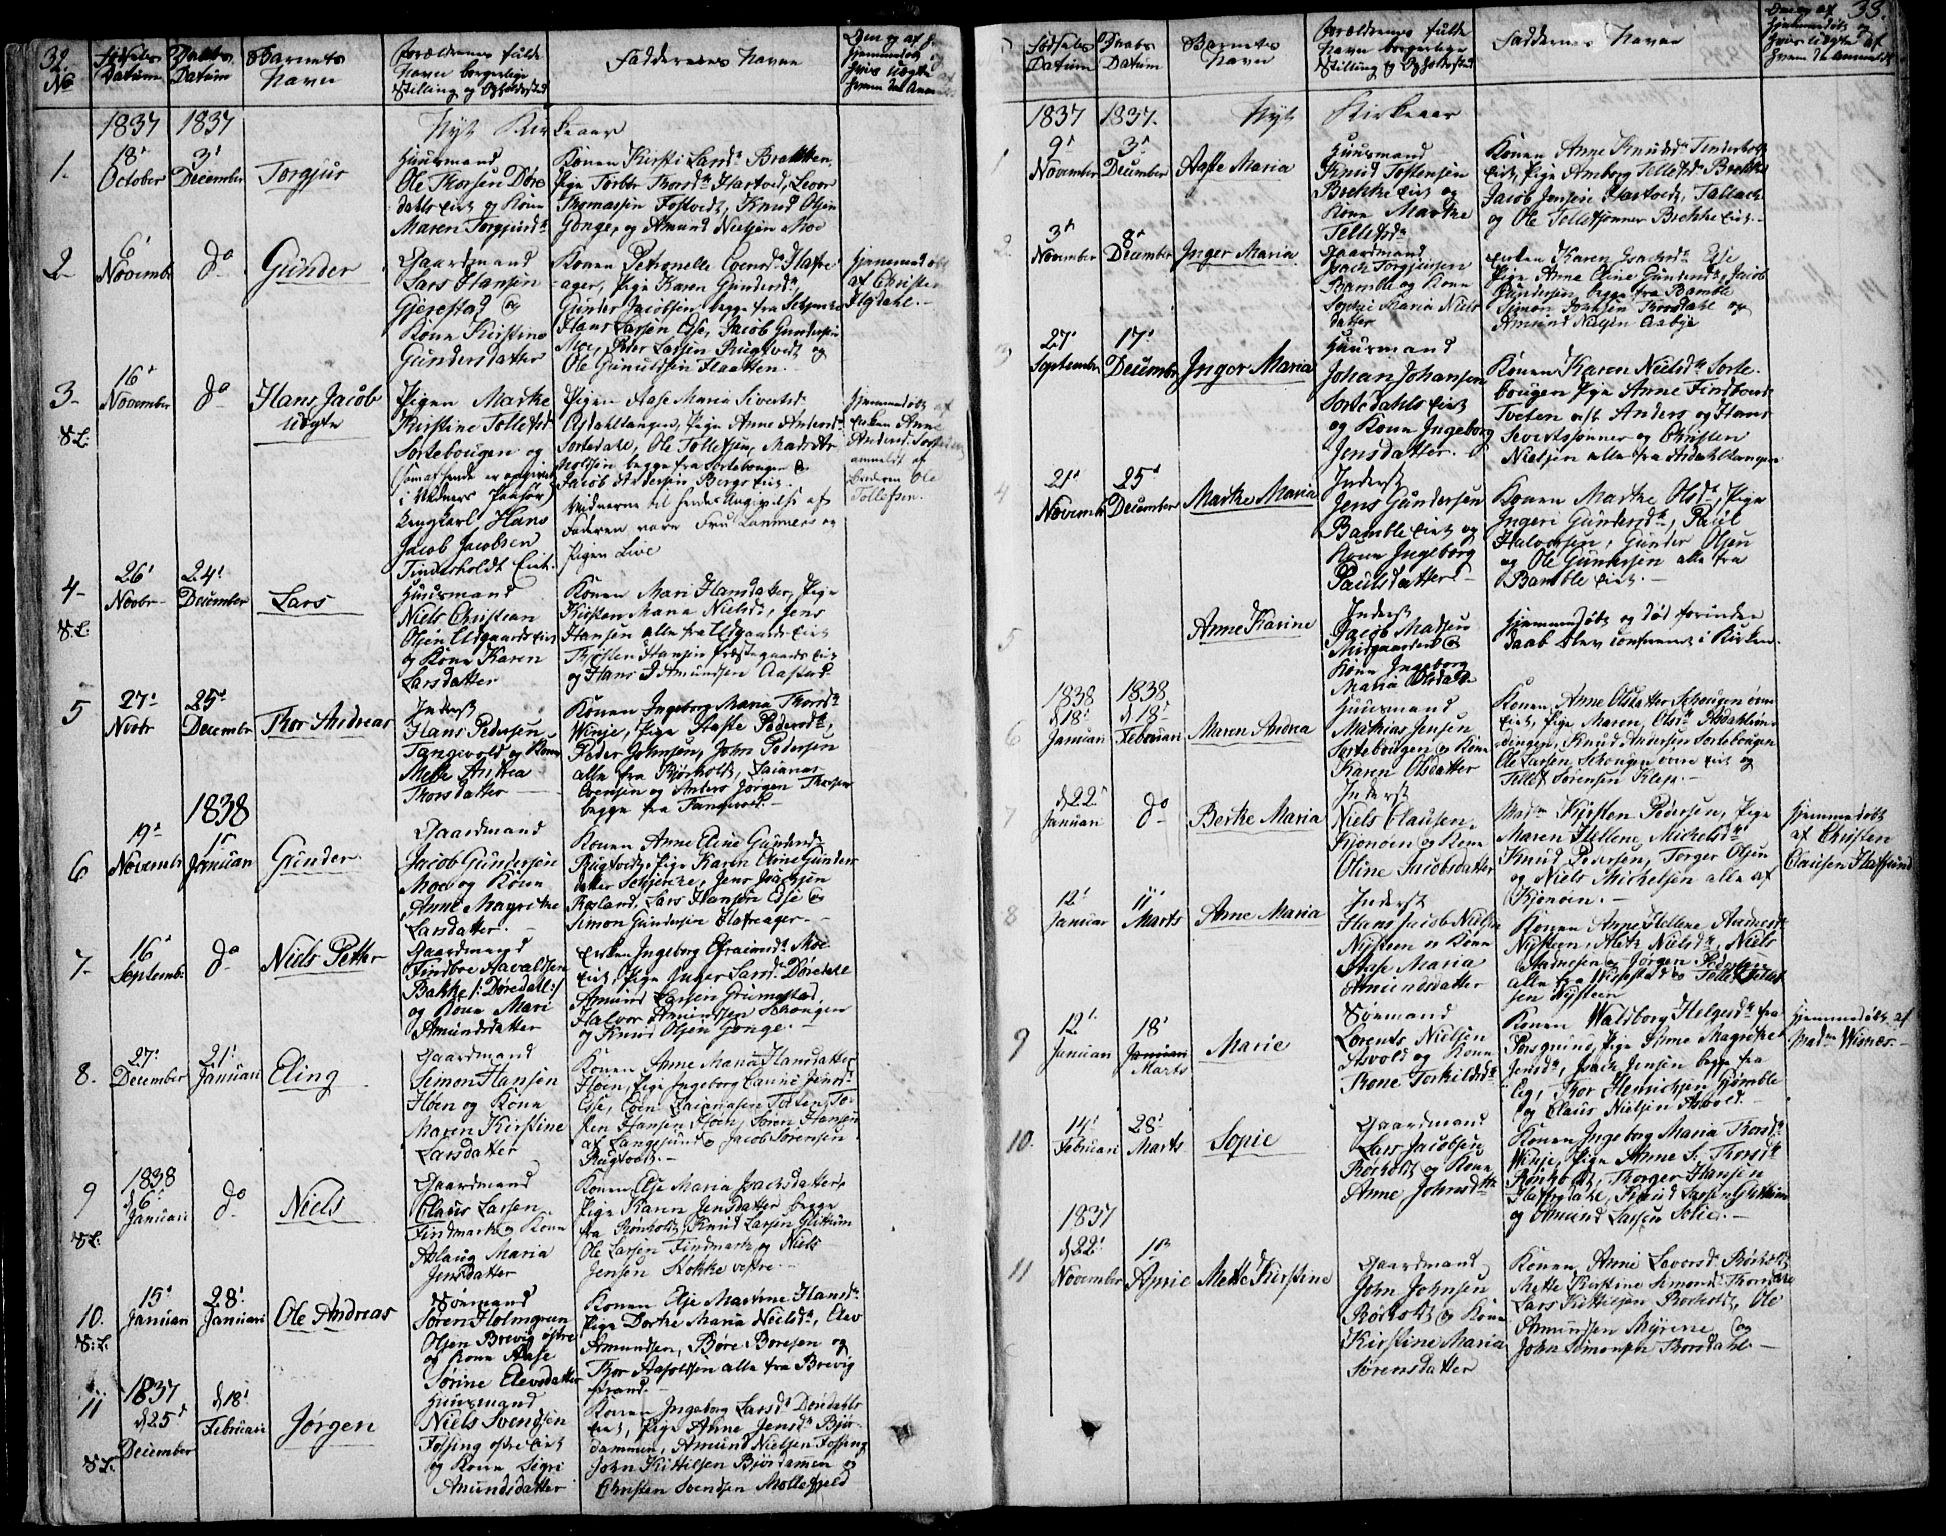 32.
No
Fødsels Datum
Daabs Datum
Barnets Navn
Forældrenes fulde Navn borgerlige Stilling og Opholdsted
Faddernes Navne
1837 1837 Nyt Kirkeaar
1.
18d October
3d December
Torgjus
Huusmand
Ole Thorsen Døre
dahls Eiet og Kone
Maren Torgjusdr
Konen Kirsti Larsdr Brekken,
Pige Torbor Thorsdr Hartvedt, Levor
Thomassen Fostvedt, Knud Olsen
Gonge, og Amund Nielsen Moe
2
6d Novembr
do
Gunder
Gaardmand
Lars Hansen
Gjerestad og
Kone Kirstine
Gundersdatter
Konen Petronelle Evensdr Hafre
ager, Pige Karen Gundersdr,
Gunder Jacobsen begge fra
Hans Larsen Ese, Jacob Gundersen
Moe, Peder Larsen Rugtvedt og
Ole Gunuldsen Flaatten.
hjemmedøbt
af Christen
3.
16d November
do
Hans Jacob
Uægte
Pigen Marthe
Kirstine Tollefsdr
Sortebougen og
(som af hende er opgivet
Ungkarl Hans
Jacob Jacobsen
Tinderholdt Eiet.
Pigen Aase Maria Sivertsdr
Asdahltangen, Pige Anne Andersdr
Sortedahl, Ole Tollefsen,
begge fra Sortebougen og
Jacob Andersen Bergs Eiet.
Vidnerne til hendes Angivelse af
Faderen vare Fru Lammers og
Pigen Live
hjemmedøbt af
Enken Anne
Andersdr
anmeldt af
Broderen Ole
Tollefsen.
4-
V.L.
26d Novbr
24d December
Lars
Huusmand
Niels Christian
Olsen Eiet
og Kone Karen
Larsdatter
Konen Mari Hansdatter, Pige
Kirsten Maria Nielsdr, Jens
Hansen alle fra Eiet
Thosten Hansen Præstegaards Eiet
og Hans J. Amundsen Aastad
5
27d Novbr
25d Decembr
Thor Andreas
Inderst
Hans Pedersen
Tangvold og Kone
Mette Andrea
Thorsdatter
Konen Ingeborg Maria Thorsdr
Winje, Pige Aaste Pedersdr,
Peder Johnsen, John Pedersen
alle fra Rørholt, Zaianas
Evensen og Anders Jørgen Thorsen
begge fra Tangvold.
1838
6
19d Novembr
1d Januari
Gunder
Gaardmand
Jacob Gundersen
Moe og Kone
Anne Magrethe
Larsdatter.
Konen Anne Eline Gundersdr
Rugtvedt, Pige Karen Eline Gunders
datter, Jens Isachsen
Rosland, Lars Hansen Ese og
Simon Gundersen Hafreager.
7.
16d Septemb:
do
Niels Petter
Gaardmand
Findboe Aavaldsen
Bakke /: Døredahl :/
og Kone Mari
Amundsdatter
Enken Ingeborg Efraimsdr Moe
Eiet, Pige Inger Larsdr Døredahl
Amund Larsen Grumestad,
Halvor Amundsen Schougen
og Knud Olsen Gonge.
8.
27d December
21d Januari
Eling
Gaardmand
Simon Hansen
Høen og Kone
Maren Kirstine
Larsdatter
Konen Anne Maria Hansdatter
Høen, Pige Ingeborg Jensdr
Ese, Even Zaianasen Torsen,
Hansen, Høen, Søren Hansen
af Langesund og Jacob Sørensen
Rugtvedt.
9
V.L.
1838
d 6d Januari
do
Niels
Gaardmand
Claus Larsen
Findmark og Kone
Aslaug Maria
Jensdatter
Konen Else Maria Isachsdatter,
Pige Karen Jensdatter begge
fra Rønholt, Knud Larsen Glittum
Ole Larsen Findmark og Niels
Jensen Stokke vestre.
10.
V.L.
15d Januari
28d Januari
Ole Andreas
Sømand
Søren Holmgreen
Olsen Brevig østre
og Kone Aase
Sørine Elevsdatter
Konen Else Martine Hansdr
Pige Dorthe Maria Nielsdr, Elev
Amundsen, Børe Boresen og
Thor Aasoldsen alle fra Brevig
strand.
11
V.L.
1837
d 25d December
d 18d Februari
Jørgen
Huusmand
Niels Svendsen
Fossing østre Eiet
og Kone Sigri
Amundsdatter
Konen Ingeborg Larsdr Døredahls
Eiet, Pige Anne Jensdr Bjør-
dammen, Amund Nielsen Fossing,
John Kittilsen Bjørdamen og
Christen Svendsen Mollefjeld
33.
Fødsels Datum
Daabs Datum
Barnets Navn
Forældrenes fulde Navn borgerlige Stilling og Opholdsted
Faddernes Navne
1837 1837. Nyt Kirkeaar
1
9d November
3d December
Aaste Maria
Huusmand
Knud Tostensen
Brekke Eiet og
Kone Marthe
Tellefsdr
Konen Anne Knudsdr Tinderholt
Eiet, Pige Amborg Tellefsdr Brekke
Jacob Jensen Hartvedt, Tallack
og Ole Tellefsønner Brekke Eiet.
2
3d November
8d December
Inger Maria
Gaardmand
Isach Torgjussen
Bamble og Kone
Sophie Maria Niels
datter
Enken Karen Isachsdr Ese
Pige Anne Oline Gundersdr, Jacob
Gundersen begge fra Bamble
Simon Isaksen Thorsdahl og
Amund Nilsen Aabye
3
27d September
17d Decembr
Inger Maria
Huusmand
Johan Johansen
Sortedahls Eiet
og Kone Ingeborg
Jensdatter.
Konen Karen Nielsdr Sorte-
bougen Pige Anne Findboesdr
Tveten, Anders og Hans
Sivertssønner og Christen
Nielsen alle fra Asdahltangen
4
21d Novembr
25d December
Marthe Maria
Inderst
Jens Gundersen
Bamble Eiet og
Kone Ingeborg
Paulsdatter
Konen Marthe Olsdr, Pige
Ingeri Gundersdr, Paul
Halvorsen, Gunder Olsen
og Ole Gundersen alle fra
Bamble Eiet.
5
Anne Karine
Inderst
Jacob Madsen
Midgaarden og
Kone Ingeborg
Maria Olsdatr
hjemmedøbt og død forinden
daab blev confirmeret i Kirken.
6
1838
d 18d Januari
1838
d 18d Februari
Maren Andrea
Huusmand
Mathias Jensen
Sortebougen og Kone
Karen Olsdatter
Konen Anne Olsdatter Schougen øvre
Eiet, Pige Maren Olsdr Asdahlen-
dingen, Knud Andersen Sortebougen
Ole Larsen Schougen øvre Eiet og
Tellef Sørensen Klep.
7
d 22d Januari
do
Berthe Maria
Inderst
Niels Clausen
Kjønøen og Kone
Oline Jacobsdatter
Madm Kirsten Pedersen, Pige
Maren Hellene Michelsdr
Knud Pedersen, Torger Olsen
og Niels Michelsen alle af
Kjønøen.
hjemmedøbt
af Christen
Clausen
8
12d Januar
11 Marts
Anne Maria
Inderst
Hans Jacob Nielsen
Nysteen og Kone
Aase Maria
Amundsdatter
Konen Anne Hellene Andersdr
Nysteen, Aleth Nielsdr, Niels
Andresen og Jørgen Pedersen
alle fra og Tellef Tellef
sen Nysteen
9
12d Januari
18d Januari
Marts
Marie
Sømand
Lorents Nielsen
Aavold og Kone
Rone Torkildsdr
Konen Waldborg Helgesdr fra
Porsgrund, Pige Anne Magrethe
Jensdr, Isach Jensen begge fra
Eeg, Thor Henrichsen Hjømble
og Claus Nielsen Aavold.
hjemmedøbt af
Madm Wisner.
10.
14d Februari
28d Marts
Sopie
Gaardmand
Lars Jacobsen
Rørholt og Kone
Anne Johnsdtr
Konen Ingeborg Maria Thorsdr
Winje, Pige Anne S. Thorsdr
Rønholt, Thorger Hansen
Knud Larsen Glittum
og Amund Larsen Solie.
11
1837
d 22d November
1d Aprie
Mette Kirstine
Gaardmand
John Johnsen
Rørholt og Kone
Kirstine Maria
Sørensdatter
Konen Anne Leversdr Rørholt
Mette Kirstine Simonsdr Thorsdahl
Lars Kittilsen Rørholt, Ole
Amundsen Myrene og
John Simonsen Thorsdahl.